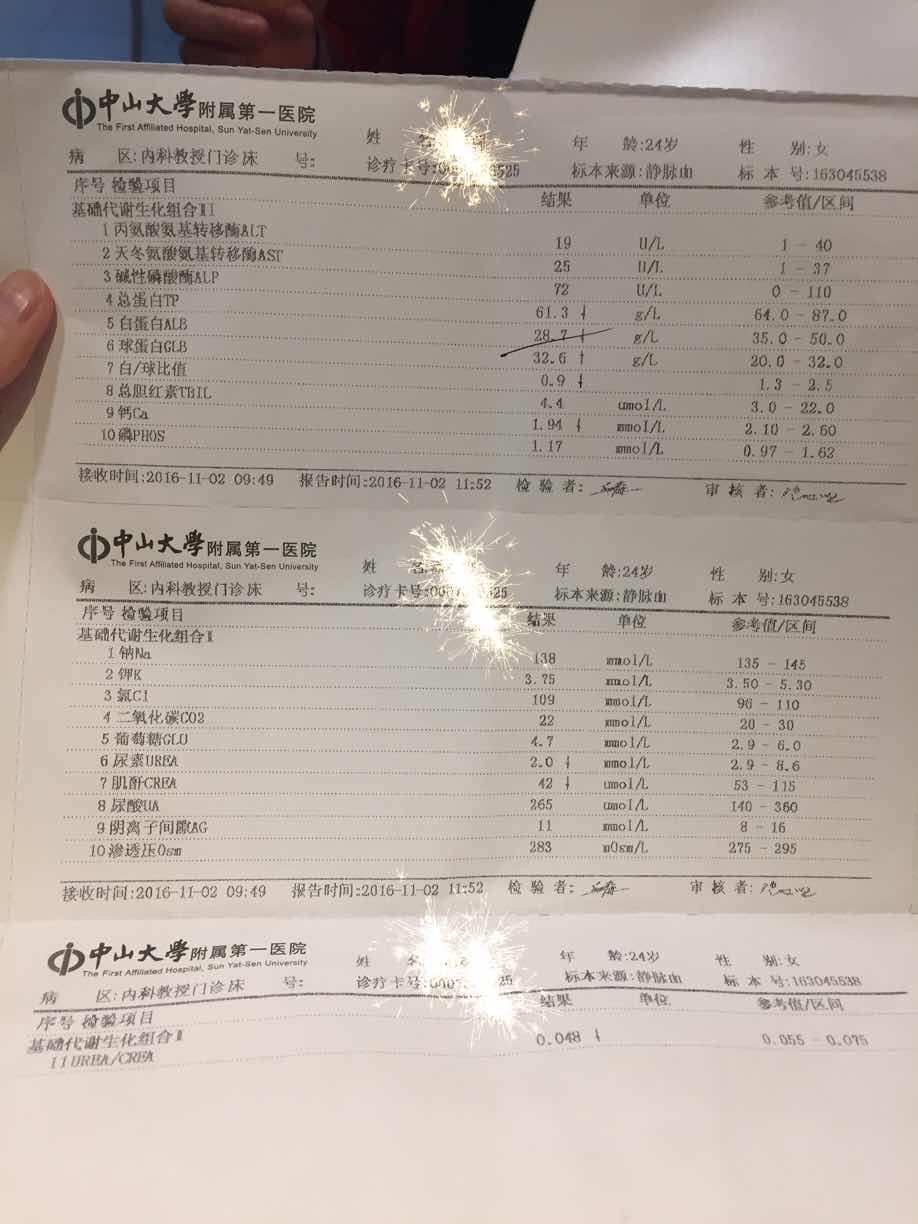 中山大學附属第一医院
The First Affiliated Hospital, Sun Yat-Sen University
姓 名 年 龄:24岁 性 别:女
病 区:内科教授门诊床 号: 诊疗卡号:00 525 标本来源:静脉血 标 本 号:163045538
序号 检验项目 结果 单位 参考值/区间
基础代谢生化组合III
1 丙氨酸氨基转移酶ALT 19 U/L 1 - 40
2 天冬氨酸氨基转移酶AST 25 U/L 1 - 37
3 碱性磷酸酶ALP 72 U/L 0 - 110
4 总蛋白TP 61.3 ↓ g/L 64.0 - 87.0
5 白蛋白ALB 28.7 ↓ g/L 35.0 - 50.0
6 球蛋白GLB 32.6 ↑ g/L 20.0 - 32.0
7 白/球比值 0.9 ↓ 1.3 - 2.5
8 总胆红素TBIL 4.4 umol/L 3.0 - 22.0
9 钙Ca 1.94 ↓ mmol/L 2.10 - 2.60
10 磷PHOS 1.17 mmol/L 0.97 - 1.62
接收时间:2016-11-02 09:49 报告时间:2016-11-02 11:52 检 验 者: 审 核 者:
中山大學附属第一医院
The First Affiliated Hospital, Sun Yat-Sen University
姓 名 年 龄:24岁 性 别:女
病 区:内科教授门诊床 号: 诊疗卡号:000 525 标本来源:静脉血 标 本 号:163045538
序号 检验项目 结果 单位 参考值/区间
基础代谢生化组合II
1 钠Na 138 mmol/L 135 - 145
2 钾K 3.75 mmol/L 3.50 - 5.30
3 氯Cl 109 mmol/L 96 - 110
4 二氧化碳CO2 22 mmol/L 20 - 30
5 葡萄糖GLU 4.7 mmol/L 2.9 - 6.0
6 尿素UREA 2.0 ↓ mmol/L 2.9 - 8.6
7 肌酐CREA 42 ↓ umol/L 53 - 115
8 尿酸UA 265 umol/L 140 - 360
9 阴离子间隙AG 11 mmol/L 8 - 16
10 渗透压Osm 283 mOsm/L 275 - 295
接收时间:2016-11-02 09:49 报告时间:2016-11-02 11:52 检 验 者: 审 核 者:
中山大學附属第一医院
The First Affiliated Hospital, Sun Yat-Sen University
姓 年 龄:24岁 性 别:女
病 区:内科教授门诊床 号: 诊疗卡号:000 525 标本来源:静脉血 标 本 号:163045538
序号 检验项目 结果 单位 参考值/区间
基础代谢生化组合II
11 UREA/CREA 0.048 ↓ 0.055 - 0.075